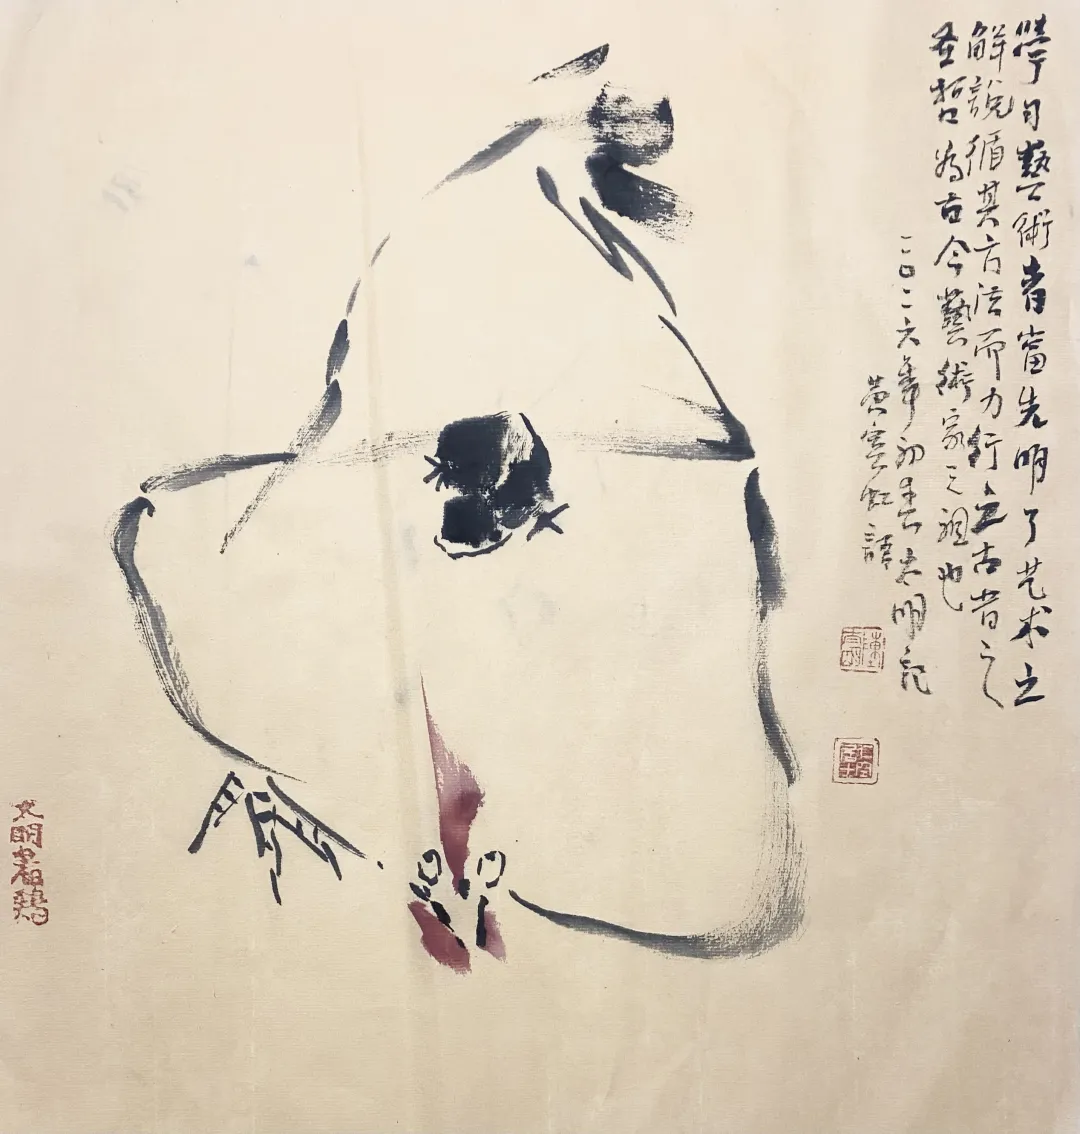 學习藝術者當先明了艺术之
解說循其方法而力行之古昔之
圣哲為古今藝術家之祖也
二〇二六年初春文明記
黄賓虹語
文明畫鷄